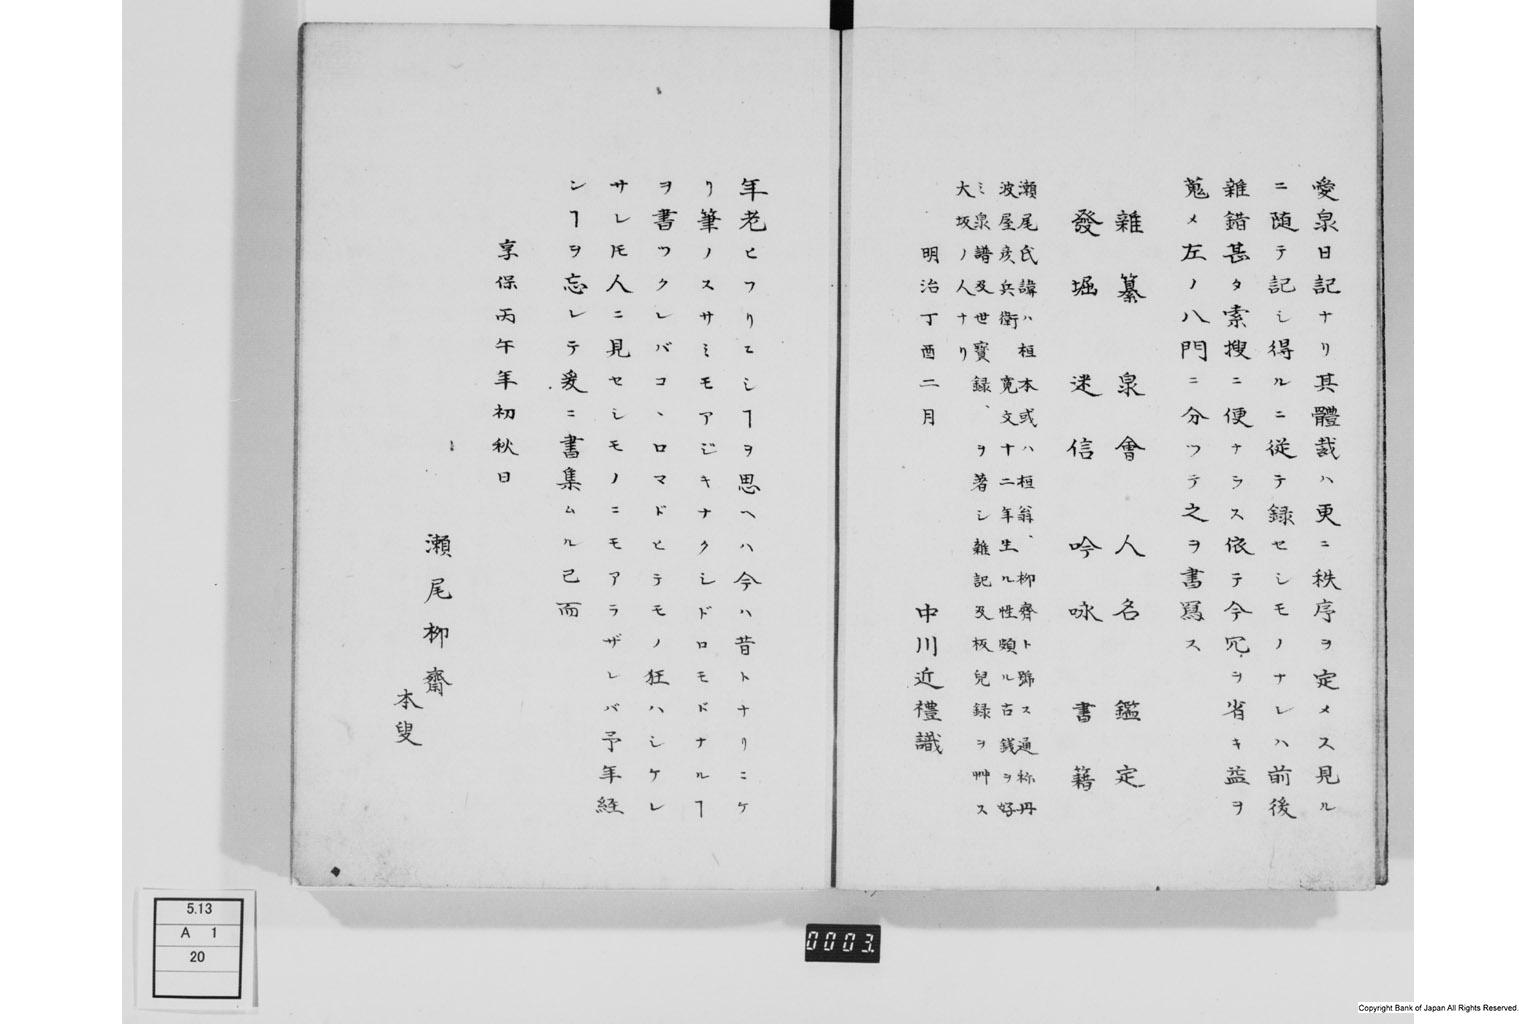 愛泉日記ナリ其體裁ハ更ニ秩序ヲ定メス見ル
ニ随テ記シ得ルニ従テ録セシモノナレハ前後
雜錯甚タ索搜ニ便ナラス依テ今冗ヲ省キ益ヲ
蒐メ左ノ八門ニ分ツテ之ヲ書寫ス
雜纂 泉會 人名 鑑定
發堀 迷信 吟咏 書籍
瀬尾氏諱ハ桓本或ハ桓翁、柳齊ト號ス通称丹
波屋彦兵衛寛文十二年生ル性頗ル古銭ヲ好
ミ泉譜及世寳録、ヲ著シ雜記及板兒録ヲ艸ス
大坂ノ人ナリ
明治丁酉二月
中川近禮識
年老ヒフリヱシヿヲ思ヘハ今ハ昔トナリニケ
リ筆ノスサミモアジキナクシドロモドナルヿ
ヲ書ツクレバコヽロマドヒテモノ狂ハシケレ
サレ𪜈人ニ見セシモノニモアラザレバ予年経
シヿヲ忘レテ爰ニ書集ムル已而
享保丙午年初秋日
瀬尾柳齋
本叟
5.13
A 1
20
0003.
Copyright Bank of Japan All Rights Reserved.